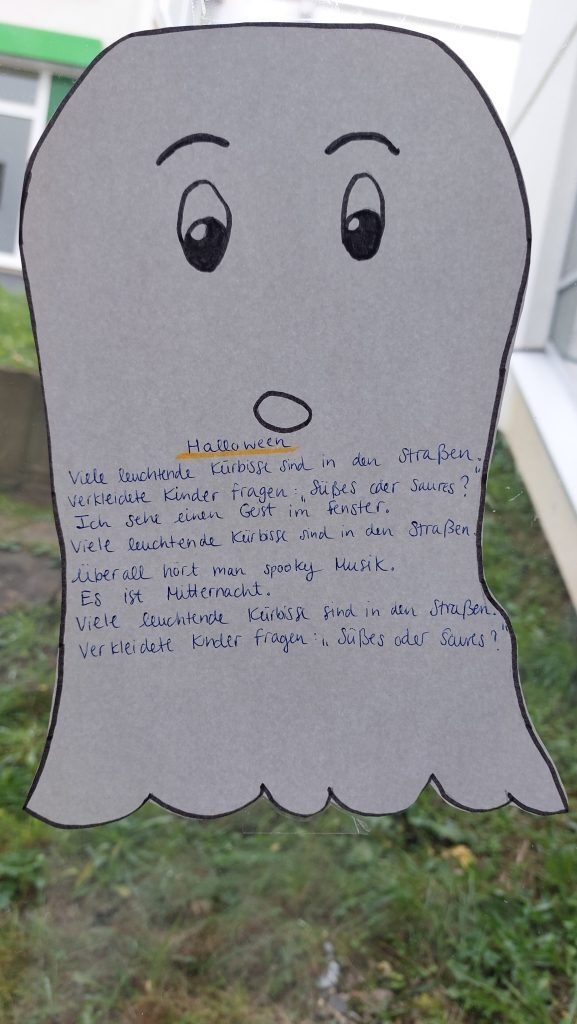 Halloween
Viele leuchtende Kürbisse sind in den Straßen.
Verkleidete Kinder fragen: „Süßes oder Saures?"
Ich sehe einen Geist im Fenster.
Viele leuchtende Kürbisse sind in den Straßen.
Überall hört man spooky Musik.
Es ist Mitternacht.
Viele leuchtende Kürbisse sind in den Straßen.
Verkleidete Kinder fragen: „Süßes oder Saures?"